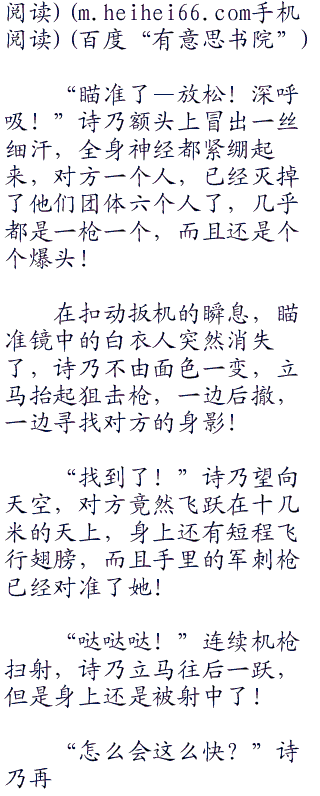 阅读) (m.heihei66.com手机
阅读) (百度“有意思书院”)
“瞄准了—放松！深呼
吸！”诗乃额头上冒出一丝
细汗，全身神经都紧绷起
来，对方一个人，已经灭掉
了他们团体六个人了，几乎
都是一枪一个，而且还是个
个爆头！
在扣动扳机的瞬息，瞄
准镜中的白衣人突然消失
了，诗乃不由面色一变，立
马抬起狙击枪，一边后撤，
一边寻找对方的身影！
“找到了！”诗乃望向
天空，对方竟然飞跃在十几
米的天上，身上还有短程飞
行翅膀，而且手里的军刺枪
已经对准了她！
“哒哒哒！”连续机枪
扫射，诗乃立马往后一跃，
但是身上还是被射中了！
“怎么会这么快？”诗
乃再